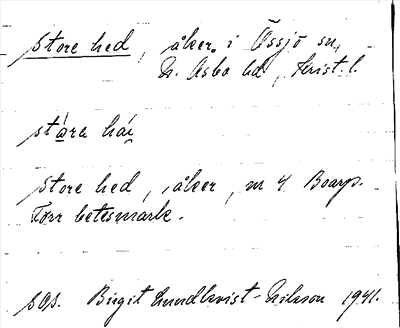 Store hed, åker i Össjö sn,
N. Åsbo hd, Krist. l.
ståra hai
Store hed, åker, nr 4 Boarp.
Torr betesmark.
sOA. Birgit Lundkvist-Nilsson 1941.